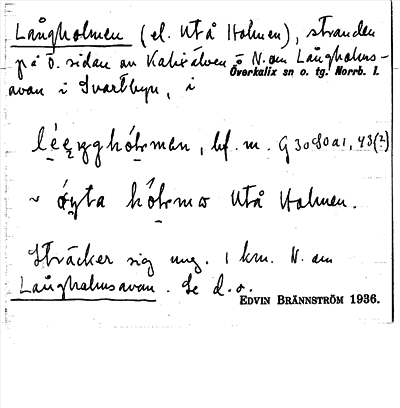 Långholmen (el. Utå Holmen), stranden
på ö. sidan av Kalixälven o N. om Långholms-
Överkalix sn o. tg. Norrb. l.
avan i Svartbyn, i
bf. m.
Utå Holmen.
Sträcker sig ung. 1 km. N. om
Långholmsavan. Se d. o.
EDVIN BRÄNNSTRÖM 1936.